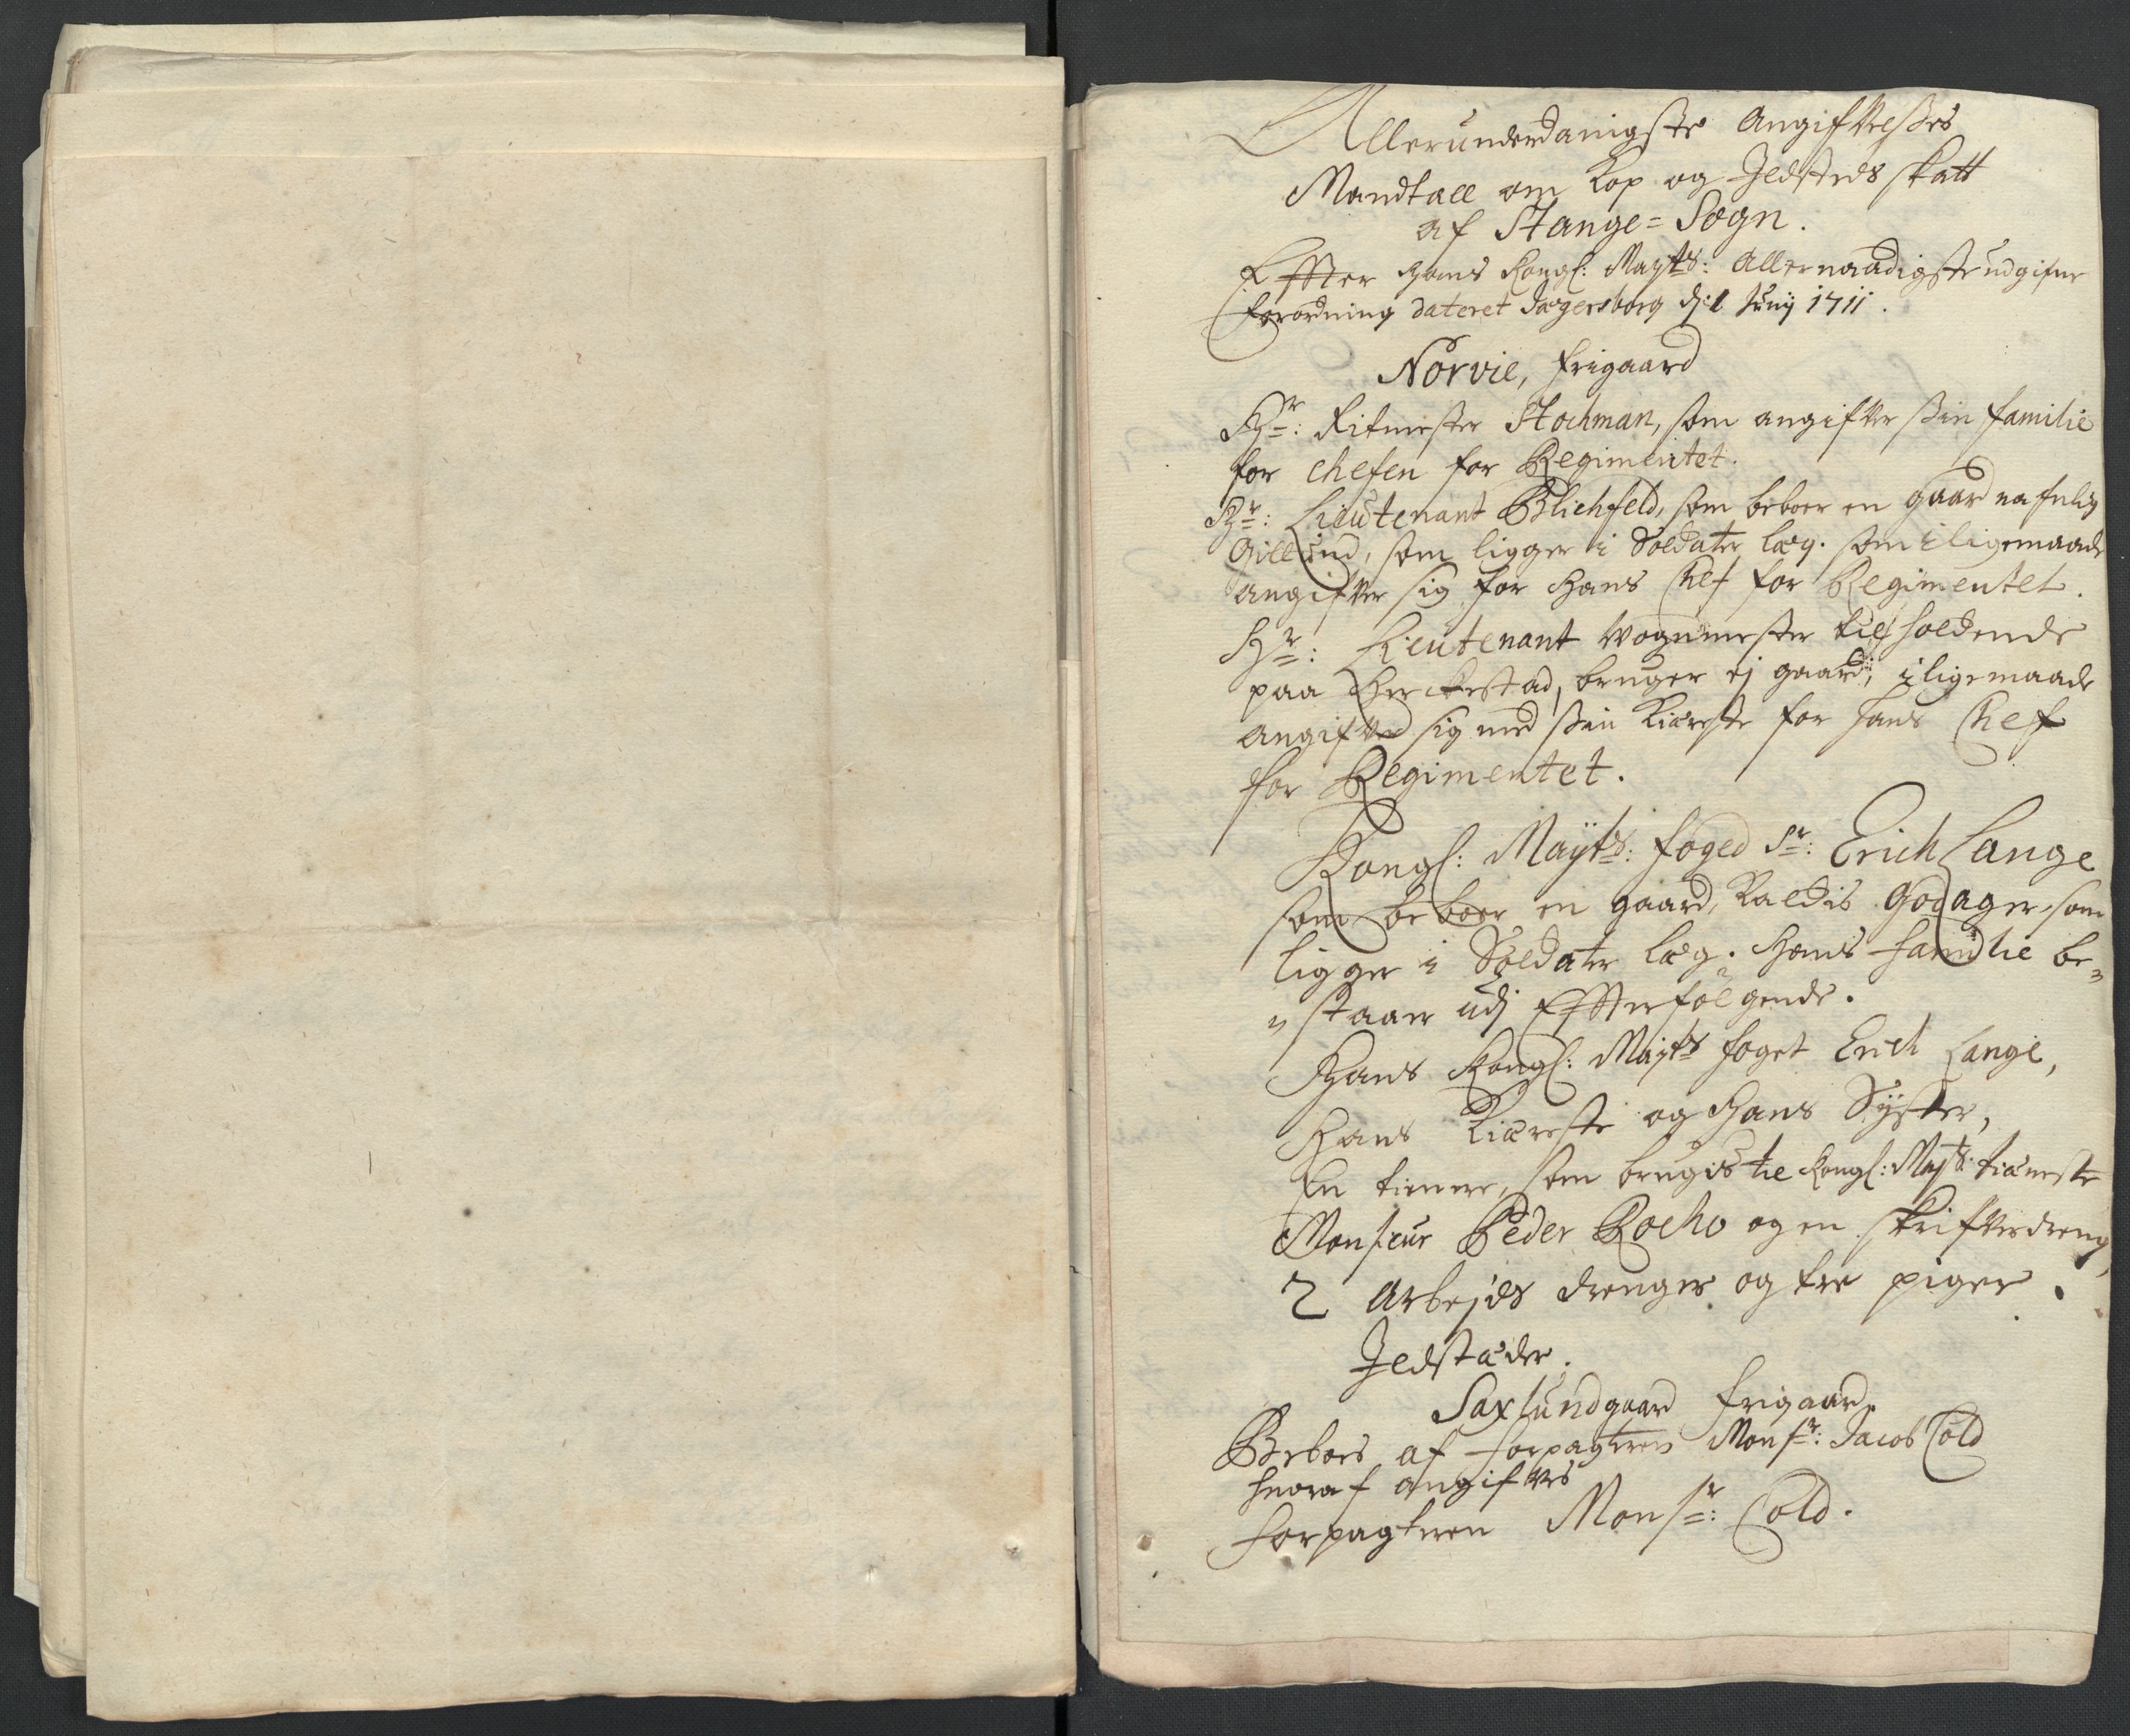 Allerunderdanigste Angifvelses
Mandtall om Kop og Jldsteds skatt
af Stange = Sogn.
Effter Hans Kongl: Mayts: Allernaadigste udgifne
Forordning dateret Jægersborg dj: 1 Junij 1711.
Norvie, frigaard
Hr: Ritmester Stochman, som angifver sin familie
for chefen for Regimentet.
Hr: Lieutenant Blichfeld, som beboer en gaard nafnlig
Gillund, som ligger i Soldater læg. som iligemaade
angifver sig for Hans Chef for Regimentet.
Hr: Lieutenant Wognmester tilholdende
paa Herckestad, bruger ej gaard, iligemaade
angifver sig med sin Kiæreste for hans Chef
for Regimentet.
Kongl: Mayts: foged Sr: Erich Lange
som beboer en gaard, Kaldis Godager, som
ligger i Soldater læg. Hans familie be„
„staar udj Effterfølgende.
Hans Kongl: Mayts foget Erich Lange,
Hans Kiæreste og Hans Syster,
En tienere, som brugis til Kongl: Mayts: tiæneste
Monsieur Peder Rocho og en skrifverdreng,
2 Arbejds drenger og tre piger.
Jldstæder.
Saxlundgaard frigaard.
Beboes af forpagteren Monsr: Jacob Cold
hvoraf angifves
forpagteren Monsr: Cold.